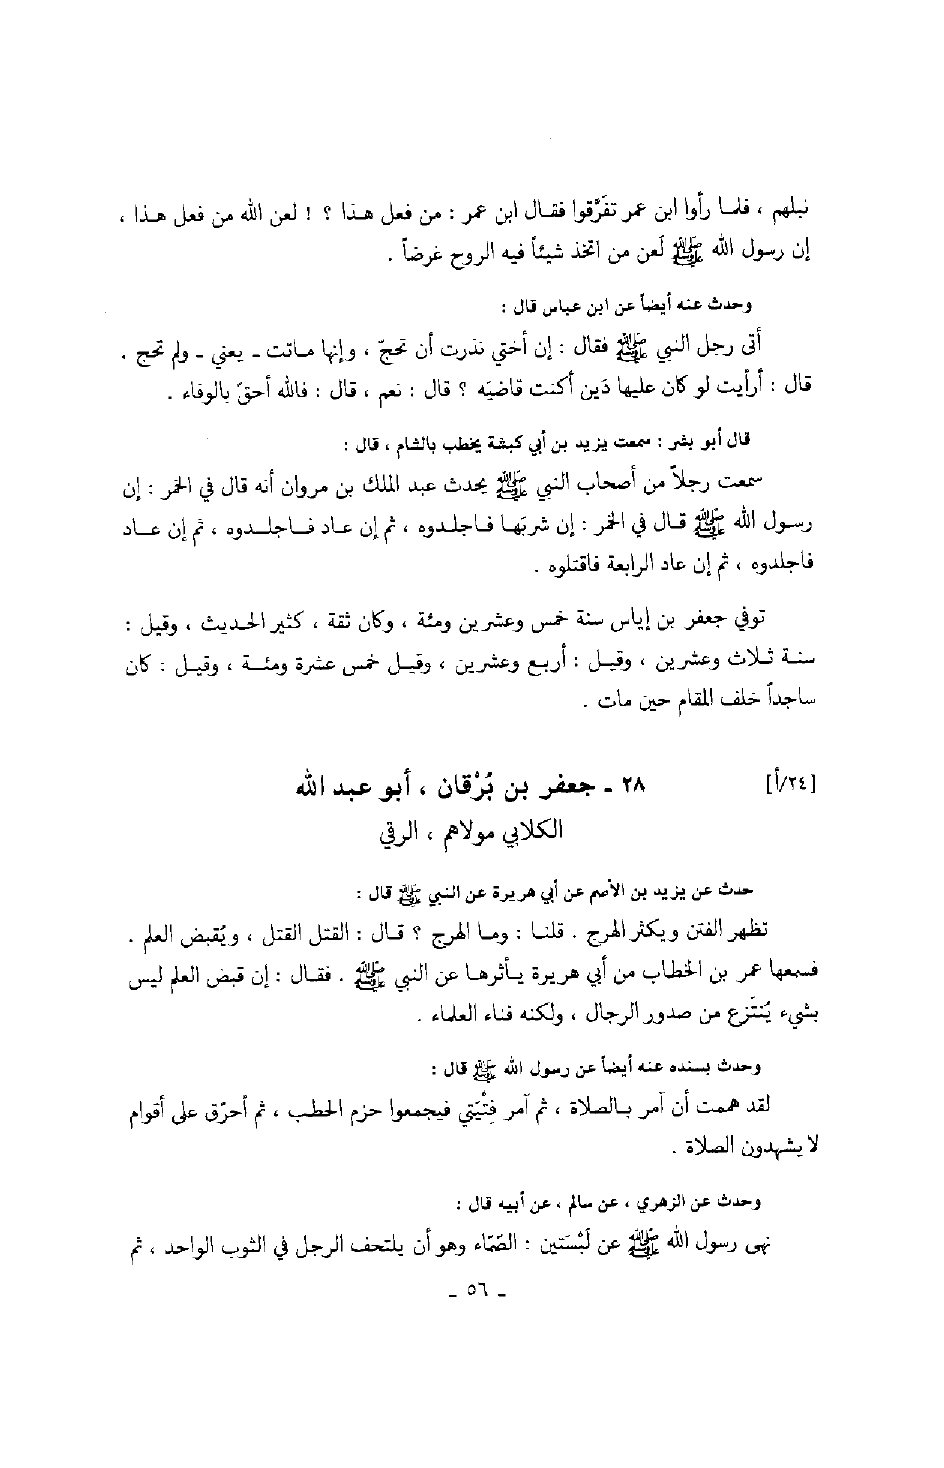 نبلهم ، فلما رأوا ابن عمر تفرَّقوا فقال ابن عمر : من فعل هذا ؟ ! لعن الله من فعل هذا ،
إن رسول الله ﷺ لَعن من اتخذ شيئاً فيه الروح غرضاً .
وحدث عنه أيضاً عن ابن عباس قال :
أتى رجل النبي ﷺ فقال : إن أختي نذرت أن تحجّ ، وإنها ماتت ـ يعني ـ ولم تحج .
قال : أرأيت لو كان عليها دَين أكنت قاضيَه ؟ قال : نعم ، قال : فالله أحقّ بالوفاء .
قال أبو بشر : سمعت يزيد بن أبي كبشة يخطب بالشام ، قال :
سمعت رجلاً من أصحاب النبي ﷺ يحدث عبد الملك بن مروان أنه قال في الخمر : إن
رسول الله ﷺ قال في الخمر : إن شربَها فاجلدوه ، ثم إن عاد فاجلدوه ، ثم إن عاد
فاجلدوه ، ثم إن عاد الرابعة فاقتلوه .
توفي جعفر بن إياس سنة خمس وعشرين ومئة ، وكان ثقة ، كثير الحديث ، وقيل :
سنة ثلاث وعشرين ، وقيل : أربع وعشرين ، وقيل خمس عشرة ومئة ، وقيل : كان
ساجداً خلف المقام حين مات .
[٢٤/أ] ٢٨ ـ جعفر بن بُرْقان ، أبو عبد الله
الكلابي مولاهم ، الرقي
حدث عن يزيد بن الأصم عن أبي هريرة عن النبي ﷺ قال :
تظهر الفتن ويكثر الهرج . قلنا : وما الهرج ؟ قال : القتل القتل ، ويُقبض العلم .
فسمعها عمر بن الخطاب من أبي هريرة يأثرها عن النبي ﷺ . فقال : إن قبض العلم ليس
بشيء يُنتَزع من صدور الرجال ، ولكنه فناء العلماء .
وحدث بسنده عنه أيضاً عن رسول الله ﷺ قال :
لقد هممت أن آمر بالصلاة ، ثم آمر فِتْيَتي فيجمعوا حزم الحطب ، ثم أحرّق على أقوام
لا يشهدون الصلاة .
وحدث عن الزهري ، عن سالم ، عن أبيه قال :
نهى رسول الله ﷺ عن لَبْسَتين : الصّمّاء وهو أن يلتحف الرجل في الثوب الواحد ، ثم
ـ ٥٦ ـ